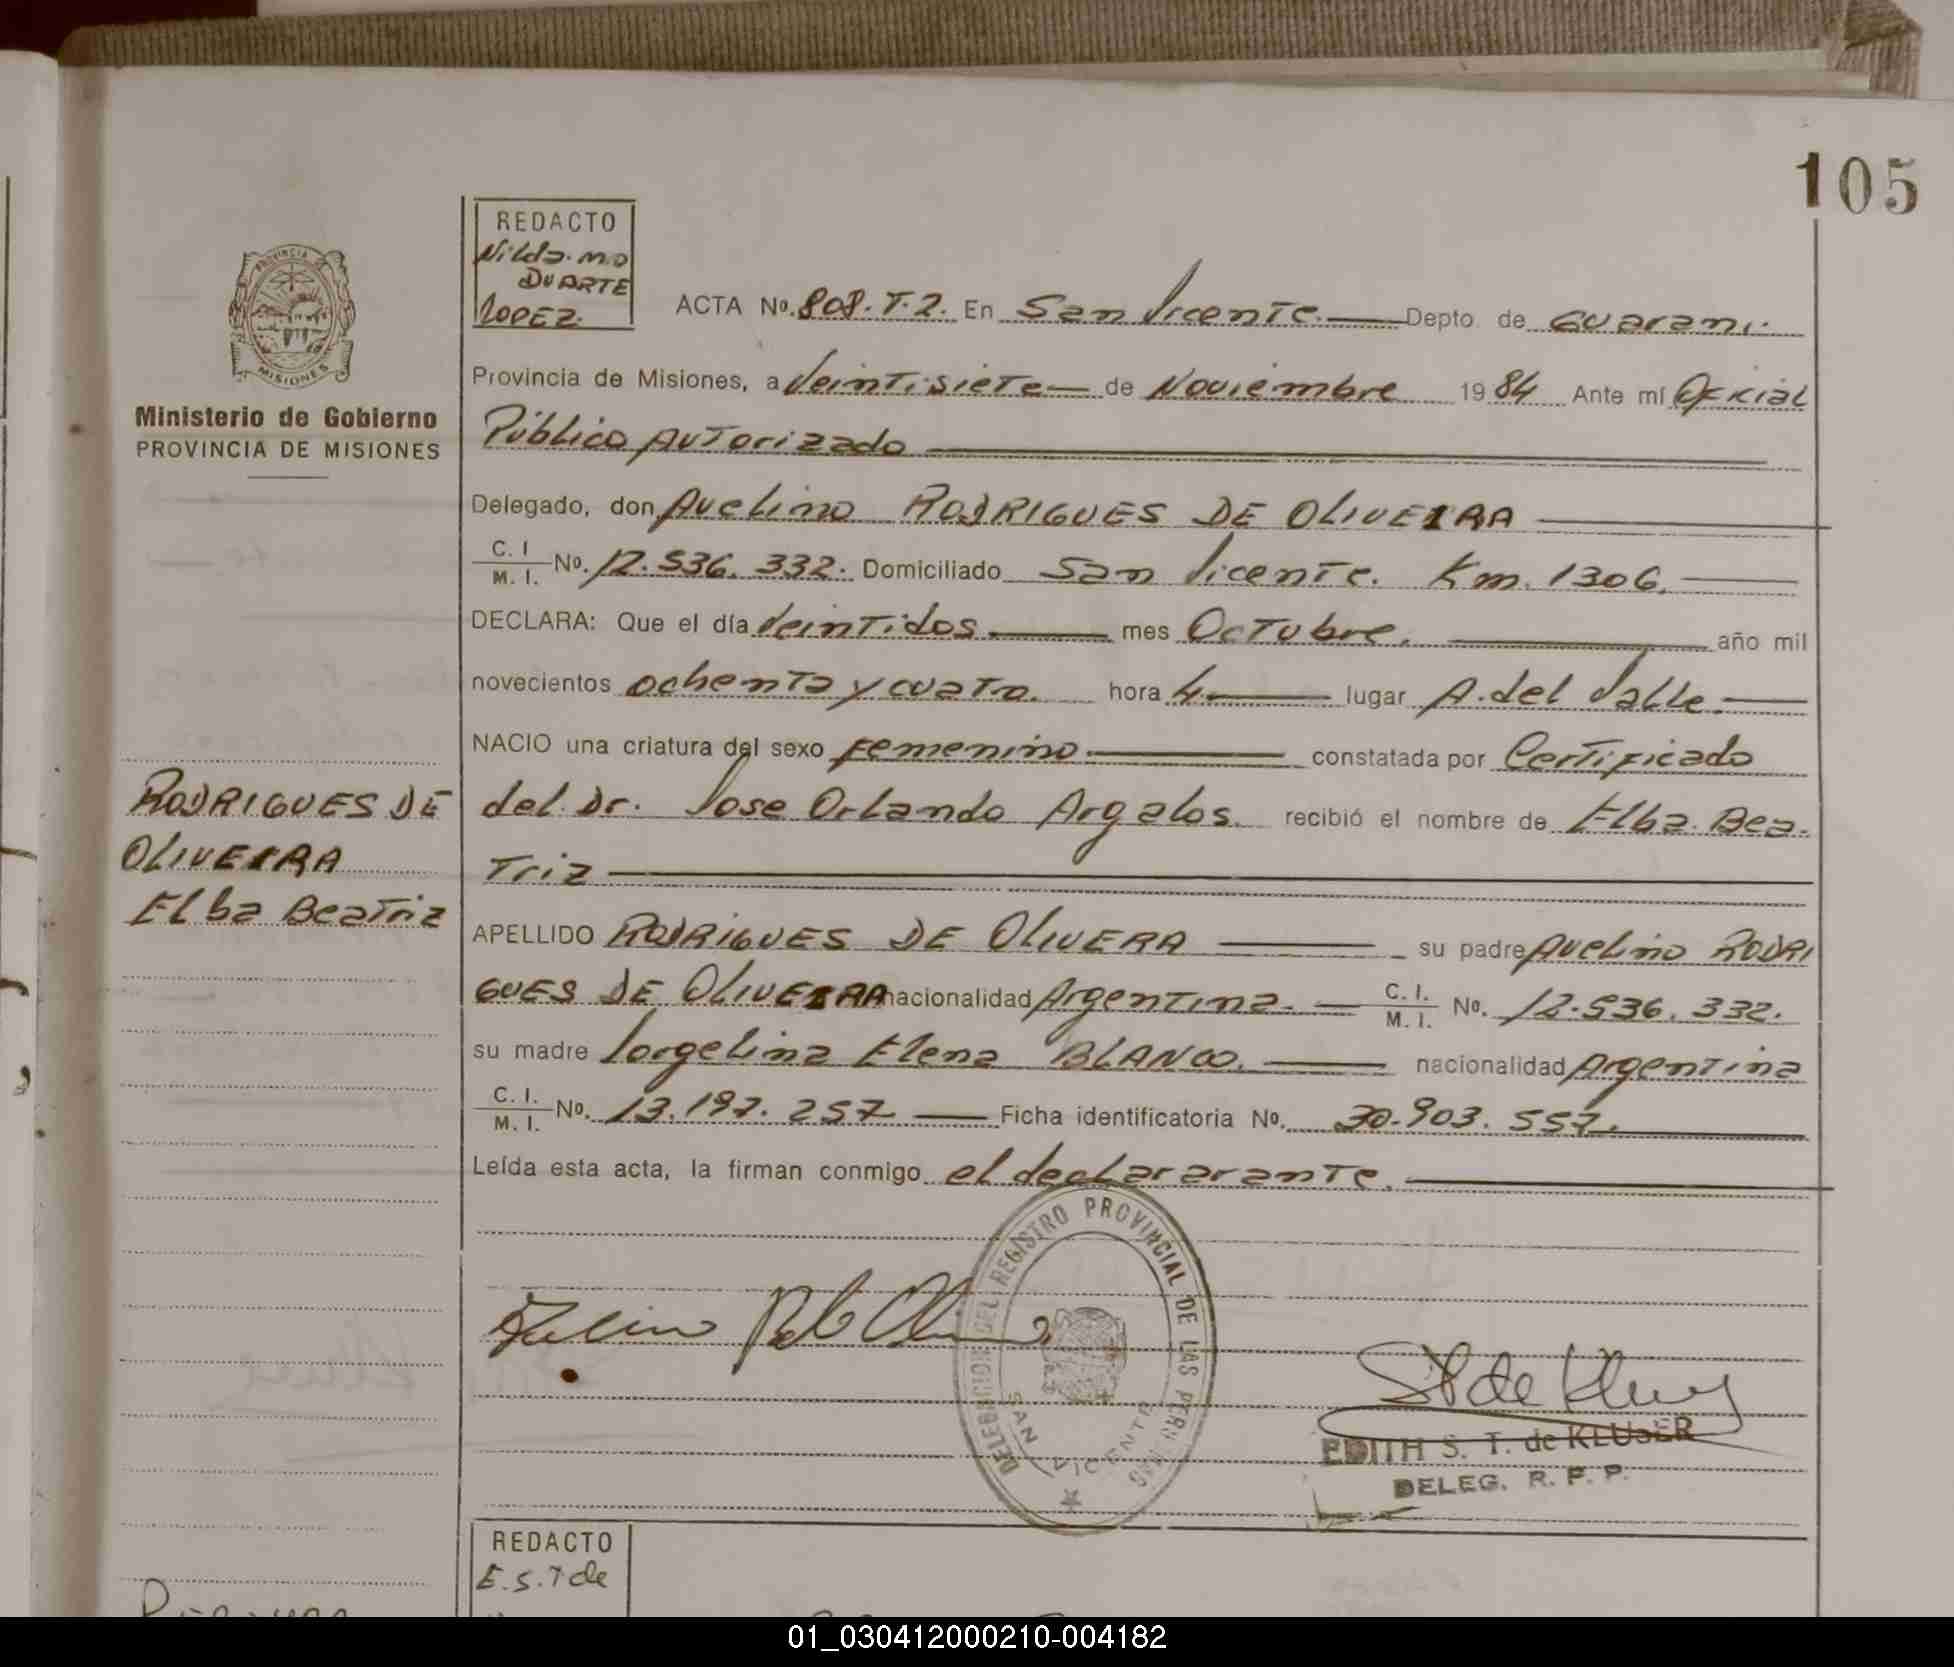 105
REDACTO
Nilda. M.D
DUARTE
LOPEZ.
PROVINCIA DE
MISIONES
Ministerio de Gobierno
PROVINCIA DE MISIONES
ACTA No. 808. T. 2. En San Vicente. Depto. de Guarani.
Provincia de Misiones, a Veintisiete de Noviembre 1984 Ante mí Oficial
Público Autorizado
Delegado, don Avelino RODRIGUES DE OLIVEIRA
C. I. M. I. No. 12.536.332. Domiciliado San Vicente. Km. 1306.
DECLARA: Que el día Veintidos mes Octubre. año mil
novecientos ochenta y cuatro. hora 4 lugar A. del Valle.
NACIO una criatura del sexo Femenino constatada por Certificado
del Dr. Jose Orlando Argalos. recibió el nombre de Elba Bea-
triz
RODRIGUES DE
OLIVEIRA
Elba Beatriz
APELLIDO RODRIGUES DE OLIVERA su padre Avelino RODRI
GUES DE OLIVEIRA nacionalidad Argentina. C. I. M. I. No. 12.536.332.
su madre Jorgelina Elena BLANCO. nacionalidad Argentina
C. I. M. I. No. 13.197.257 Ficha identificatoria No. 30.903.557.
Leída esta acta, la firman conmigo el declararante.
DELEGACION DEL REGISTRO PROVINCIAL DE LAS PERSONAS
SAN VICENTE
EDITH S. T. de KLUSER
DELEG. R. P. P.
REDACTO
E.S.T de
01_030412000210-004182